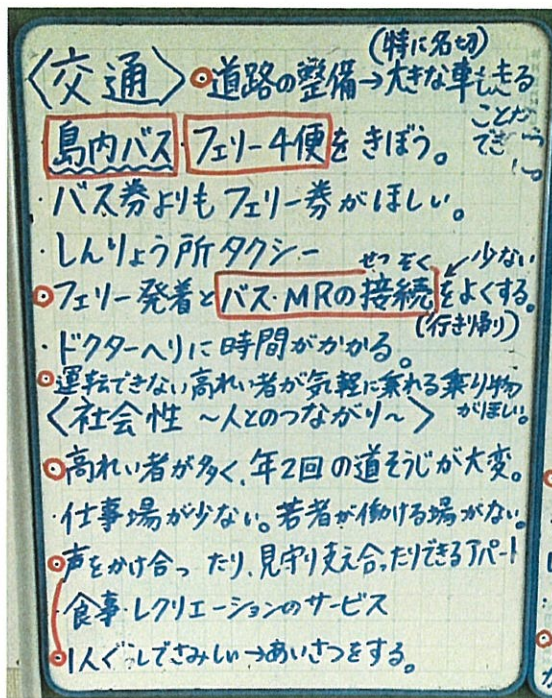 (特に名切)
〈交通〉◎道路の整備→大きな車も走る
ことができ
島内バス・フェリー4便をきぼう。
・バス券よりもフェリー券がほしい。
・しんりょう所タクシー
せつぞく 少ない
◎フェリー発着とバス・MRの接続をよくする。
(行き帰り)
・ドクターヘリに時間がかかる。
◎運転できない高れい者が気軽に乗れる乗り物
がほしい。
〈社会性 〜人とのつながり〜〉
◎高れい者が多く、年2回の道そうじが大変。
・仕事場が少ない。若者が働ける場がない。
◎声をかけ合ったり、見守り支え合ったりできるアパート
・食事・レクリエーションのサービス
◎1人ぐらしでさみしい→あいさつをする。